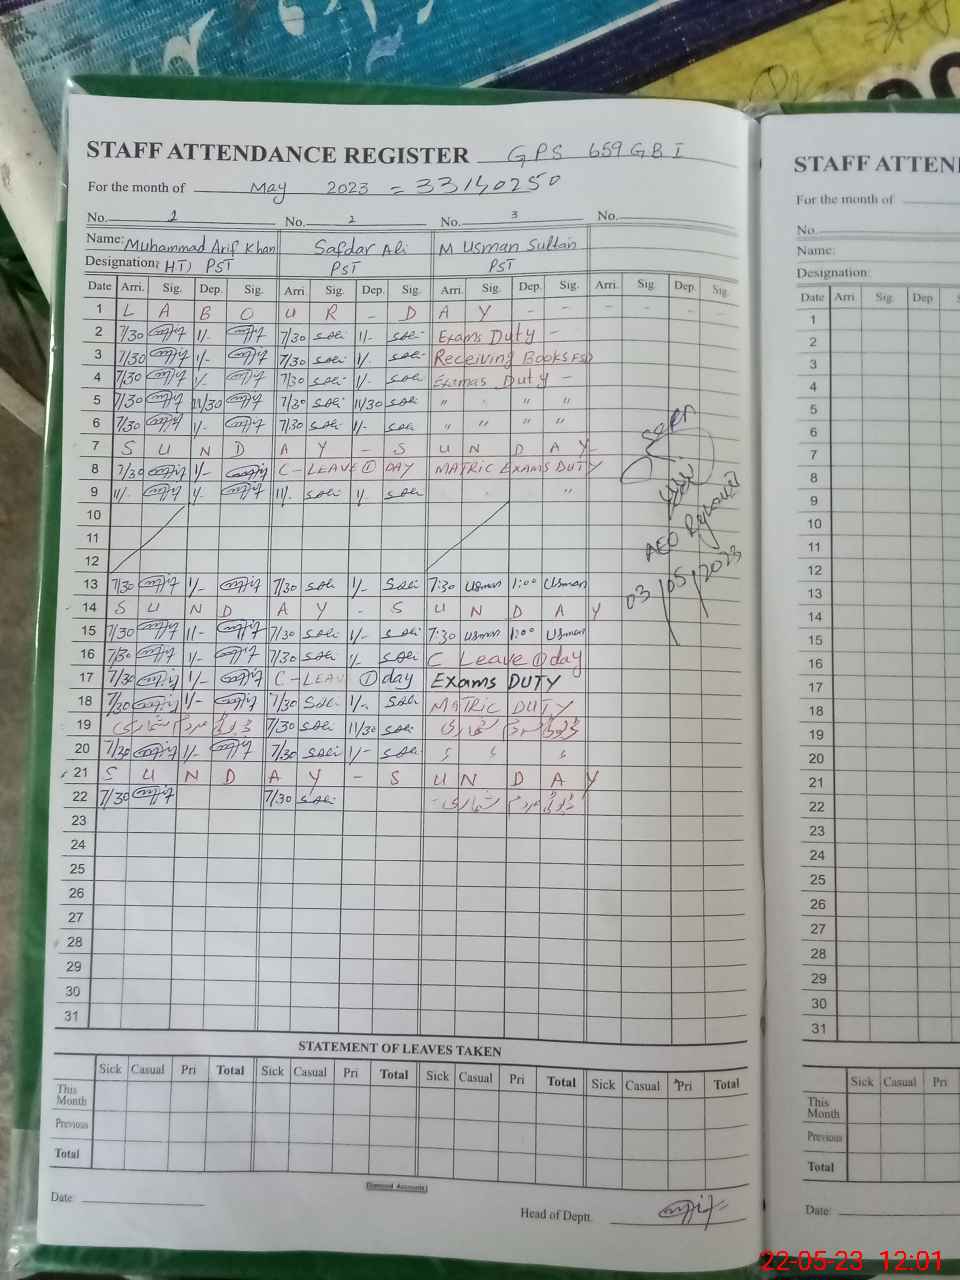 STAFF ATTENDANCE REGISTER GPS 659 GB I
For the month of May 2023 = 33140250
No. 1 No. 2 No. 3 No.
Name: Muhammad Arif Khan Safdar Ali M Usman Sultan
Designation: (HT) PST PST PST
Date Arri. Sig. Dep. Sig. Arri. Sig. Dep. Sig. Arri. Sig. Dep. Sig. Arri. Sig. Dep. Sig.
1 L A B O U R - D A Y - - - - - -
2 7/30 1/- 7/30 1/- Exams Duty -
3 7/30 1/- 7/30 1/- Receiving Books FSD
4 7/30 1/- 7/30 1/- Examas Duty -
5 7/30 11/30 7/30 11/30 " " "
6 7/30 1/- 7/30 1/- " " " "
7 S U N D A Y - S U N D A Y
8 7/30 1/- C-LEAVE ① DAY MATRIC EXAMS DUTY
9 11/- 1/- 11/- 1/- "
10
11
12
13 7/30 1/- 7/30 1/- 7:30 Usman 1:00 Usman
14 S U N D A Y - S U N D A Y
15 7/30 1/- 7/30 1/- 7:30 Usman 1:00 Usman
16 7/30 1/- 7/30 1/- C Leave ① day
17 7/30 1/- C-LEAV ① day Exams DUTY
18 7/30 1/- 7/30 1/- MATRIC DUTY
19 ڈیوٹی مردم شماری 7/30 11/30 ڈیوٹی مردم شماری
20 7/30 1/- 7/30 1/-
21 S U N D A Y - S U N D A Y
22 7/30 7/30 ڈیوٹی مردم شماری
23
24
25
26
27
28
29
30
31
Seen
AEO
03/05/2023
STATEMENT OF LEAVES TAKEN
Sick Casual Pri Total Sick Casual Pri Total Sick Casual Pri Total Sick Casual Pri Total
This Month
Previous
Total
Diamond Accounts
Date:
Head of Deptt.
STAFF ATTEN
For the month of
No.
Name:
Designation:
Date Arri. Sig. Dep
1
2
3
4
5
6
7
8
9
10
11
12
13
14
15
16
17
18
19
20
21
22
23
24
25
26
27
28
29
30
31
Sick Casual Pri
This Month
Previous
Total
Date:
22-05-23 12:01